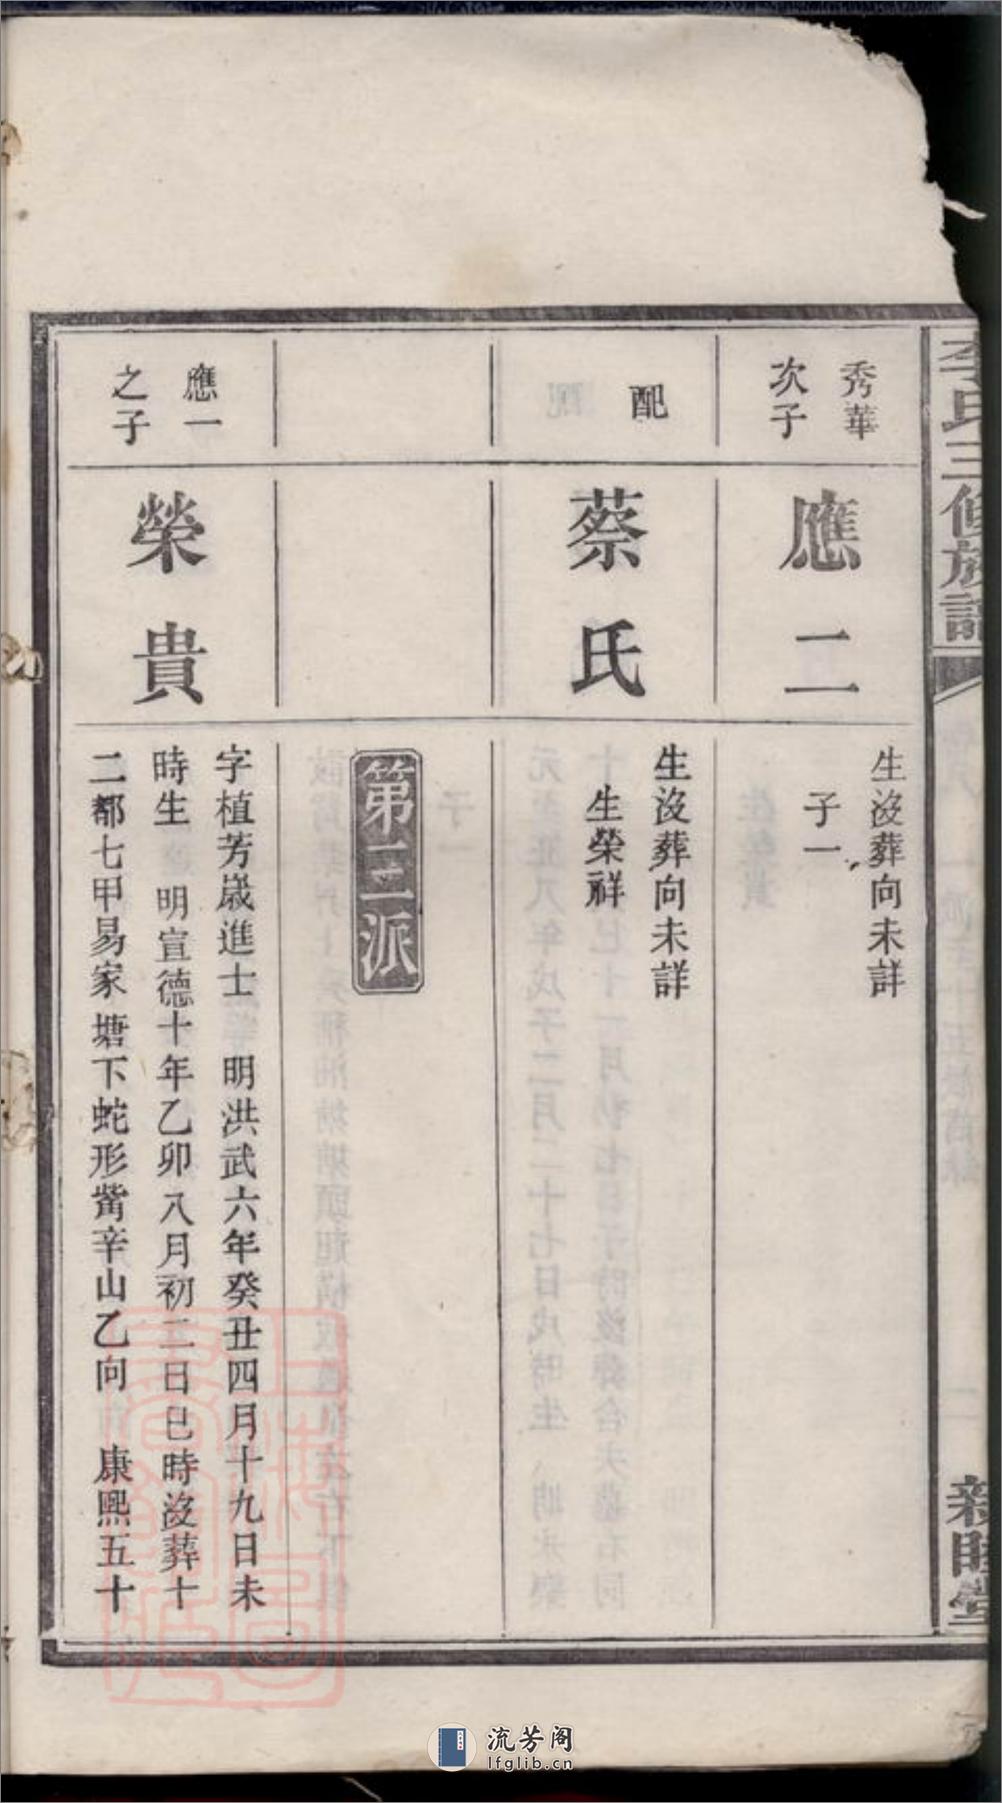 李氏三修族譜
新睦堂
秀華
次子
應二
生沒葬向未詳
子一
配
蔡氏
生沒葬向未詳
生榮祥
第三派
應一
之子
榮貴
字植芳歲進士　明洪武六年癸丑四月十九日未
時生　明宣德十年乙卯八月初二日巳時沒葬十
二都七甲易家塘下蛇形觜辛山乙向　康熙五十
流芳阁
lfglib.cn